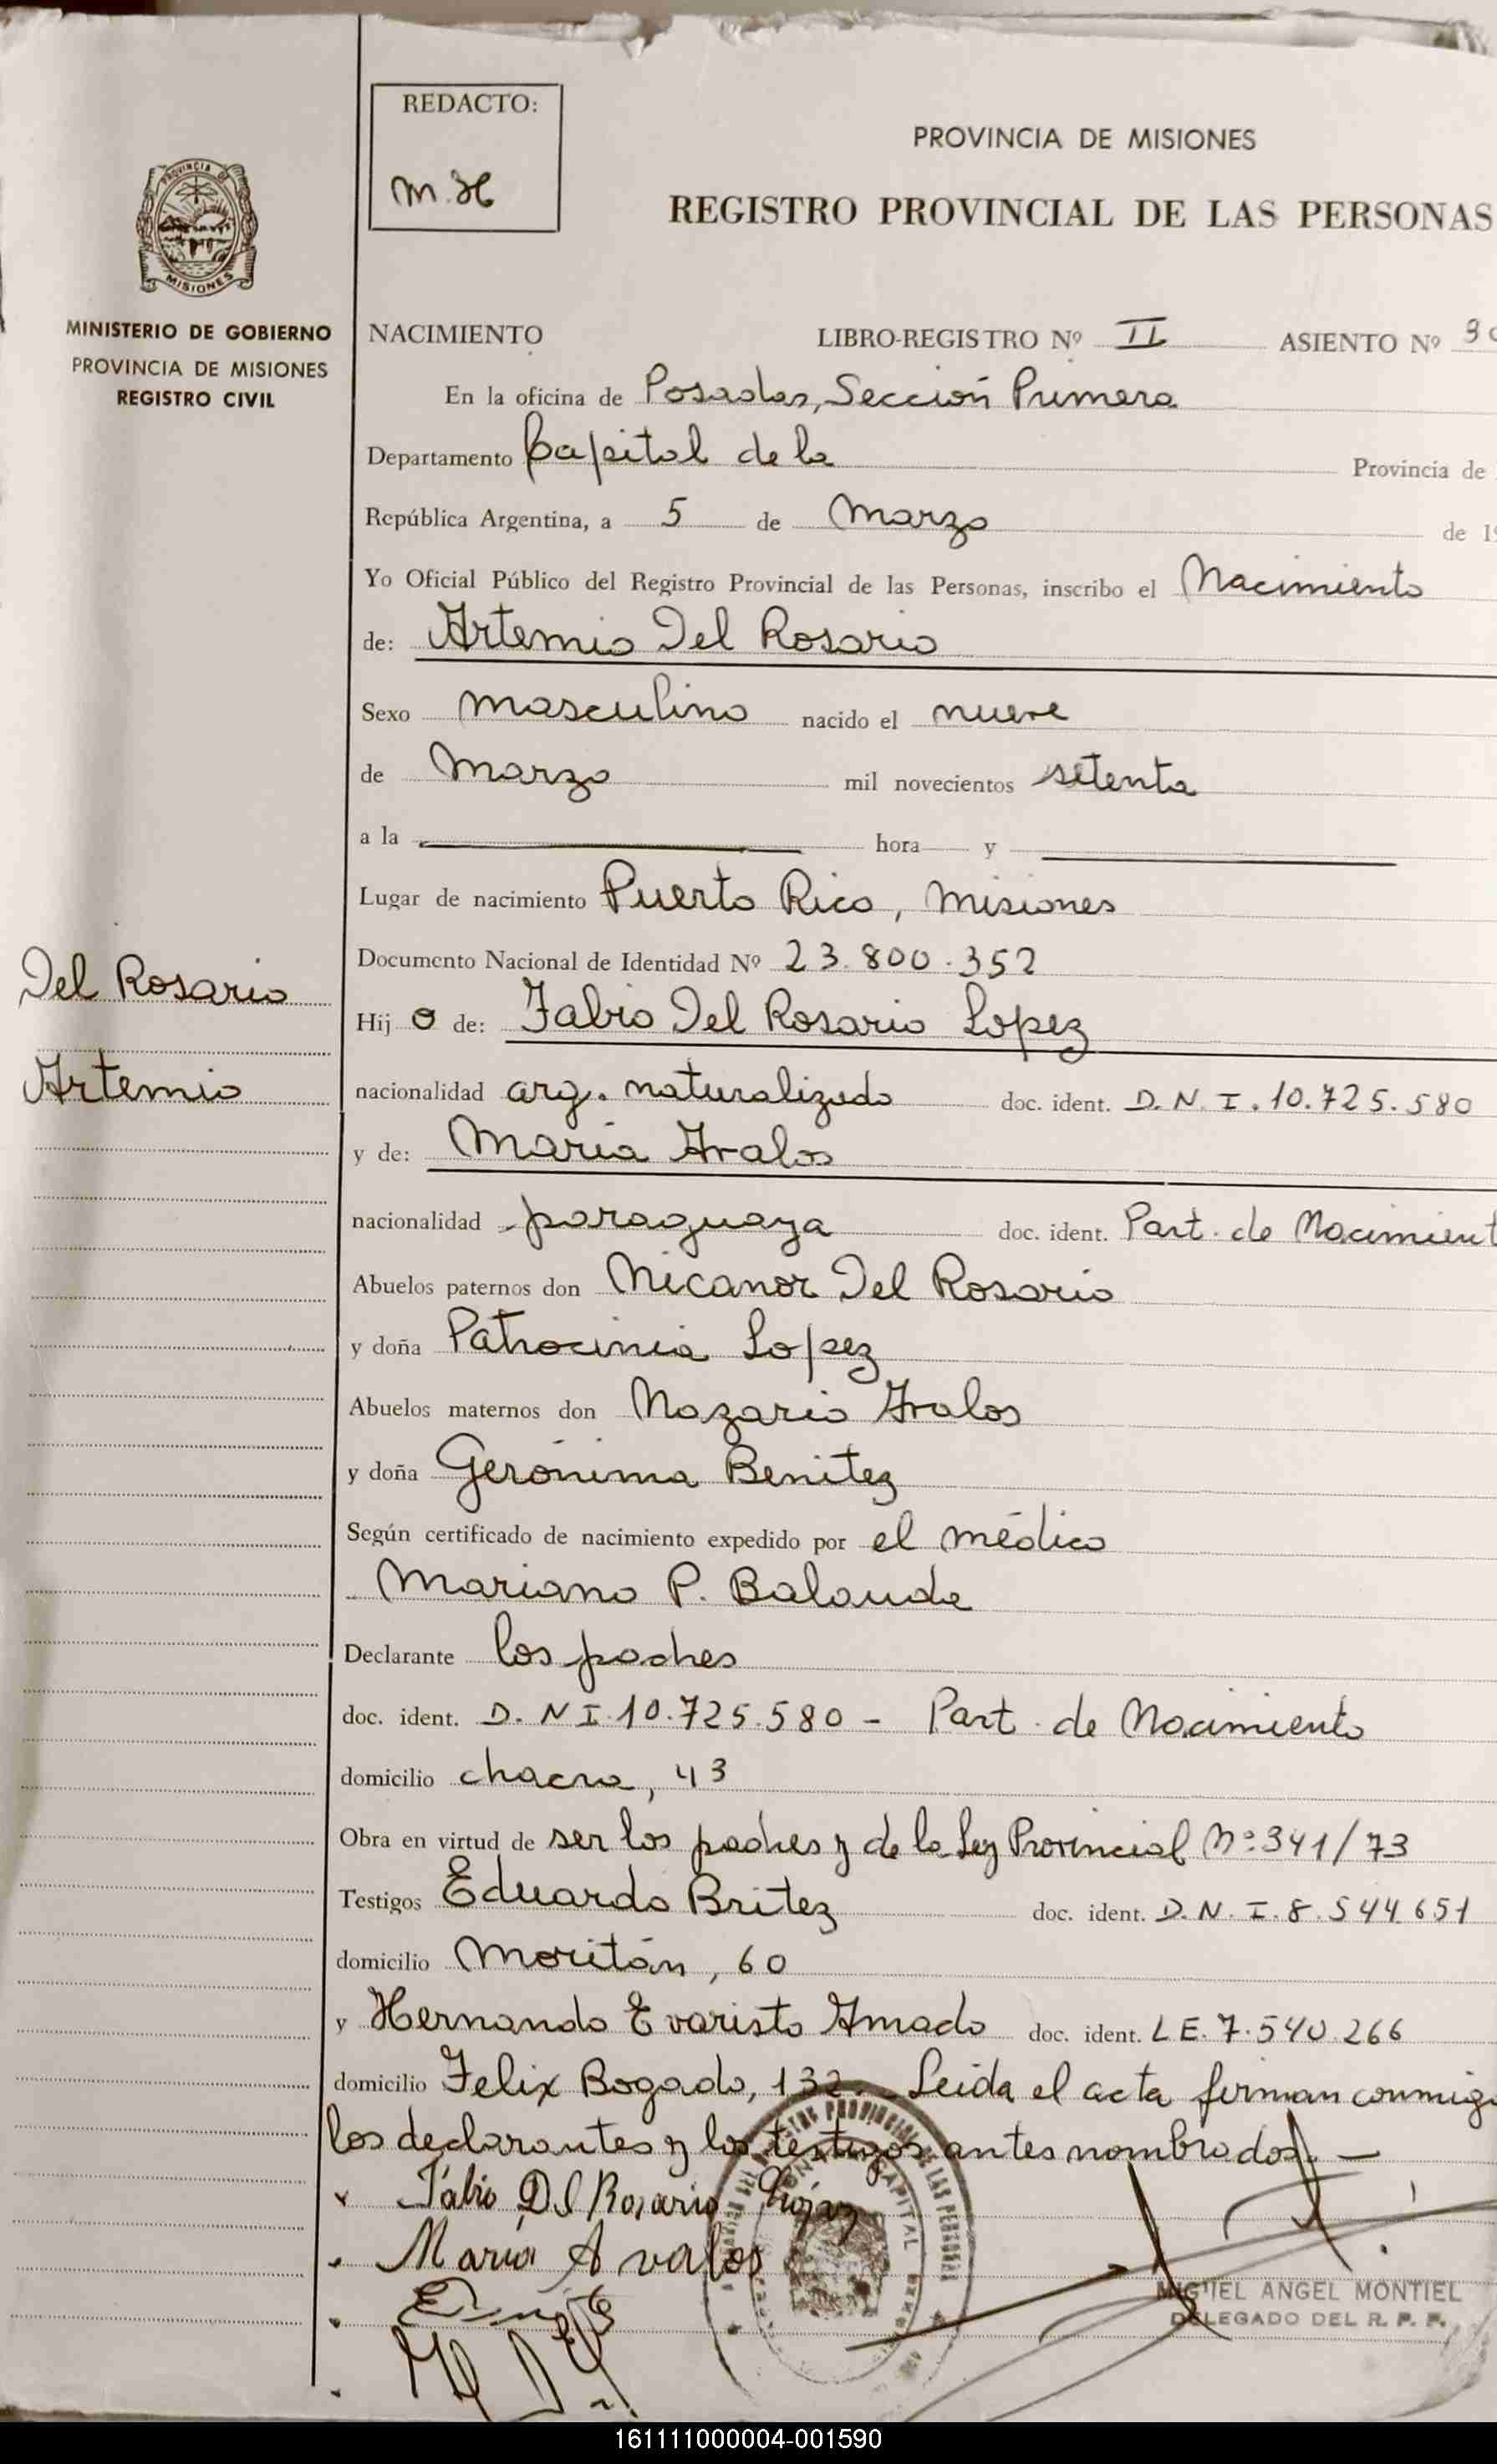 REDACTO:
m. H
PROVINCIA DE MISIONES
REGISTRO PROVINCIAL DE LAS PERSONAS
PROVINCIA DE
MISIONES
MINISTERIO DE GOBIERNO
PROVINCIA DE MISIONES
REGISTRO CIVIL
NACIMIENTO LIBRO-REGISTRO Nº II ASIENTO Nº
En la oficina de Posadas, Sección Primera
Departamento Capital de la Provincia de
República Argentina, a 5 de Marzo de 1
Yo Oficial Público del Registro Provincial de las Personas, inscribo el Nacimiento
de: Artemio Del Rosario
Sexo masculino nacido el nueve
de Marzo mil novecientos setenta
a la hora y
Lugar de nacimiento Puerto Rico, Misiones
Documento Nacional de Identidad Nº 23.800.352
Del Rosario
Artemio
Hij o de: Fabio Del Rosario Lopez
nacionalidad arg. naturalizado doc. ident. D.N.I. 10.725.580
y de: María Avalos
nacionalidad paraguaya doc. ident. Part. de Nacimient
Abuelos paternos don Nicanor Del Rosario
y doña Patrocinia Lopez
Abuelos maternos don Nazario Avalos
y doña Gerónima Benitez
Según certificado de nacimiento expedido por el médico
Mariano P. Balaude
Declarante los padres
doc. ident. D.N.I. 10.725.580 - Part. de Nacimiento
domicilio chacra, 43
Obra en virtud de ser los padres y de la Ley Provincial Nº 341/73
Testigos Eduardo Britez doc. ident. D.N.I. 8.544651
domicilio Moritán, 60
y Hernando Evaristo Amado doc. ident. LE. 7.540.266
domicilio Felix Bogado, 132. Leida el acta firman conmig
los declarantes y los testigos antes nombrados. —
Fabio Del Rosario
María Avalos
MIGUEL ANGEL MONTIEL
DELEGADO DEL R. P. P.
161111000004-001590